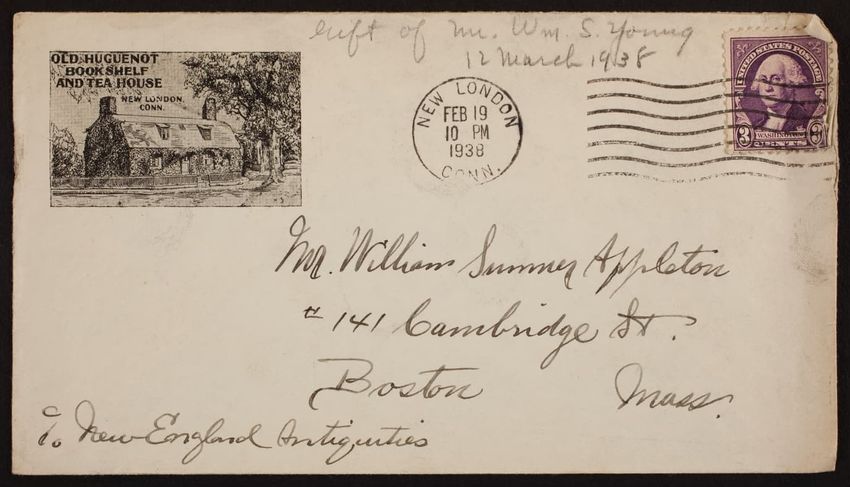 Gift of Mr. Wm. S. Young
12 March 1938
OLD HUGUENOT
BOOKSHELF
AND TEA HOUSE
NEW LONDON
CONN.
NEW LONDON
FEB 19
10 PM
1938
CONN.
UNITED STATES POSTAGE
3 WASHINGTON 3
CENTS
Mr. William Sumner Appleton
# 141 Cambridge St.
Boston Mass.
c/o New England Antiquities